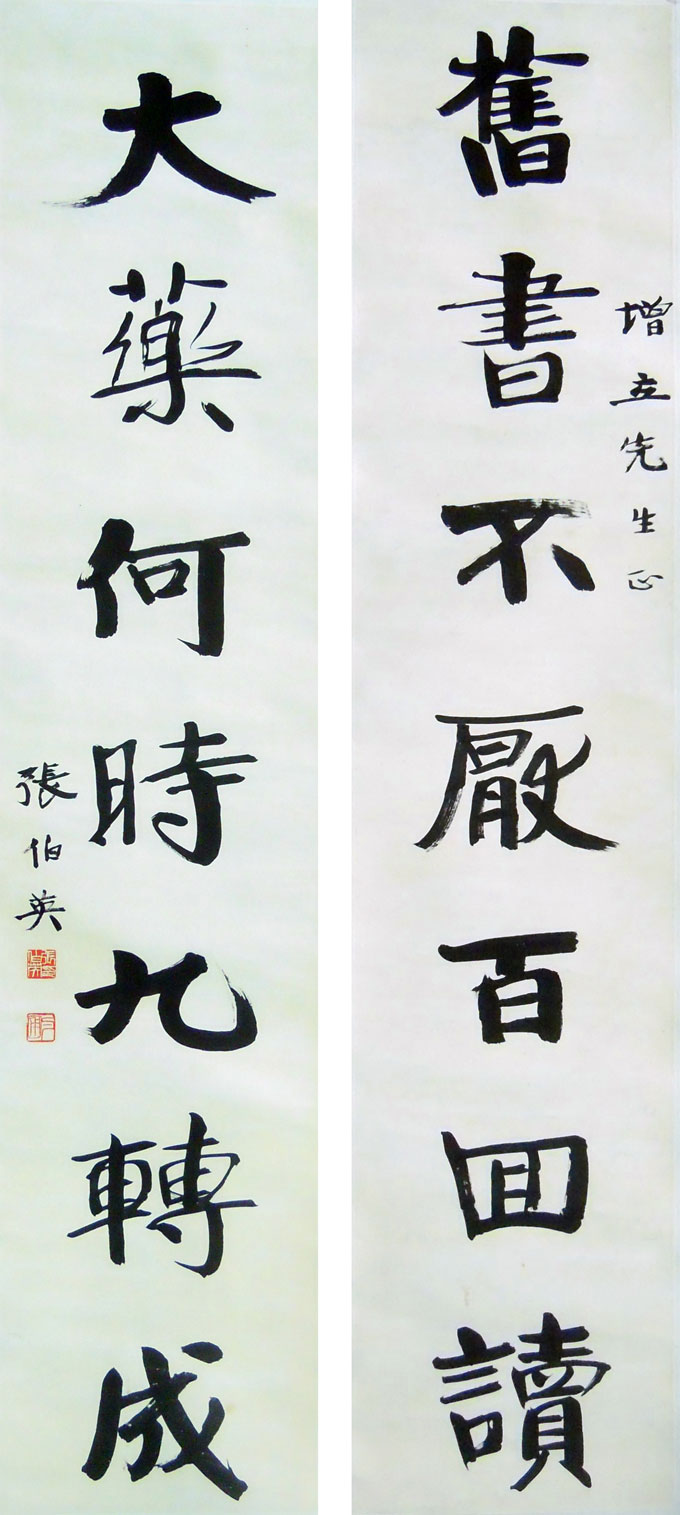 增立先生正
舊書不厭百回讀
大藥何時九轉成
張伯英